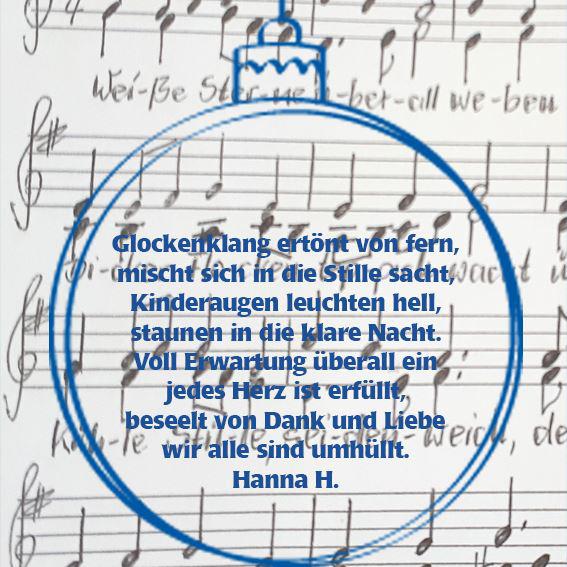 Wei-ße Ster-ne ü-ber-all we-ben
Glockenklang ertönt von fern,
mischt sich in die Stille sacht,
Kinderaugen leuchten hell,
staunen in die klare Nacht.
Voll Erwartung überall ein
jedes Herz ist erfüllt,
beseelt von Dank und Liebe
wir alle sind umhüllt.
Hanna H.
Küh-le Stil-le, sei-den-weich, de